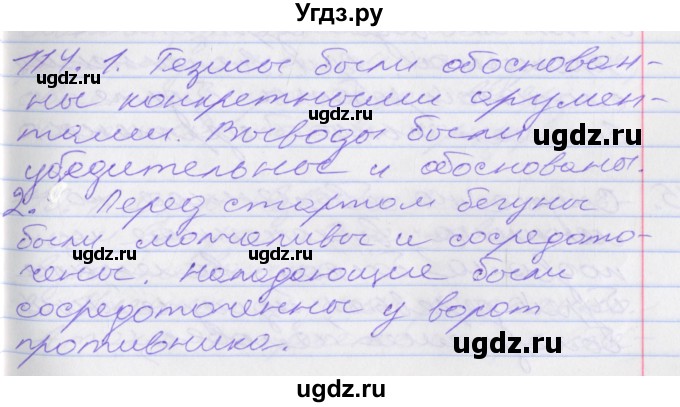 Угдз.ру
114. 1. Тезисы были обоснован-
ны конкретными арумен-
тами. Выводы были
убедительные и обоснованы.
2. Перед стартом бегуны
были молчаливы и сосредото-
чены. Нападающие были
сосредоточенны у ворот
противника.
ugdz.ru
ugdz.ru
ugdz.ru
ugdz.ru
ugdz.ru
ugdz.ru
ugdz.ru
ugdz.ru
ugdz.ru
ugdz.ru